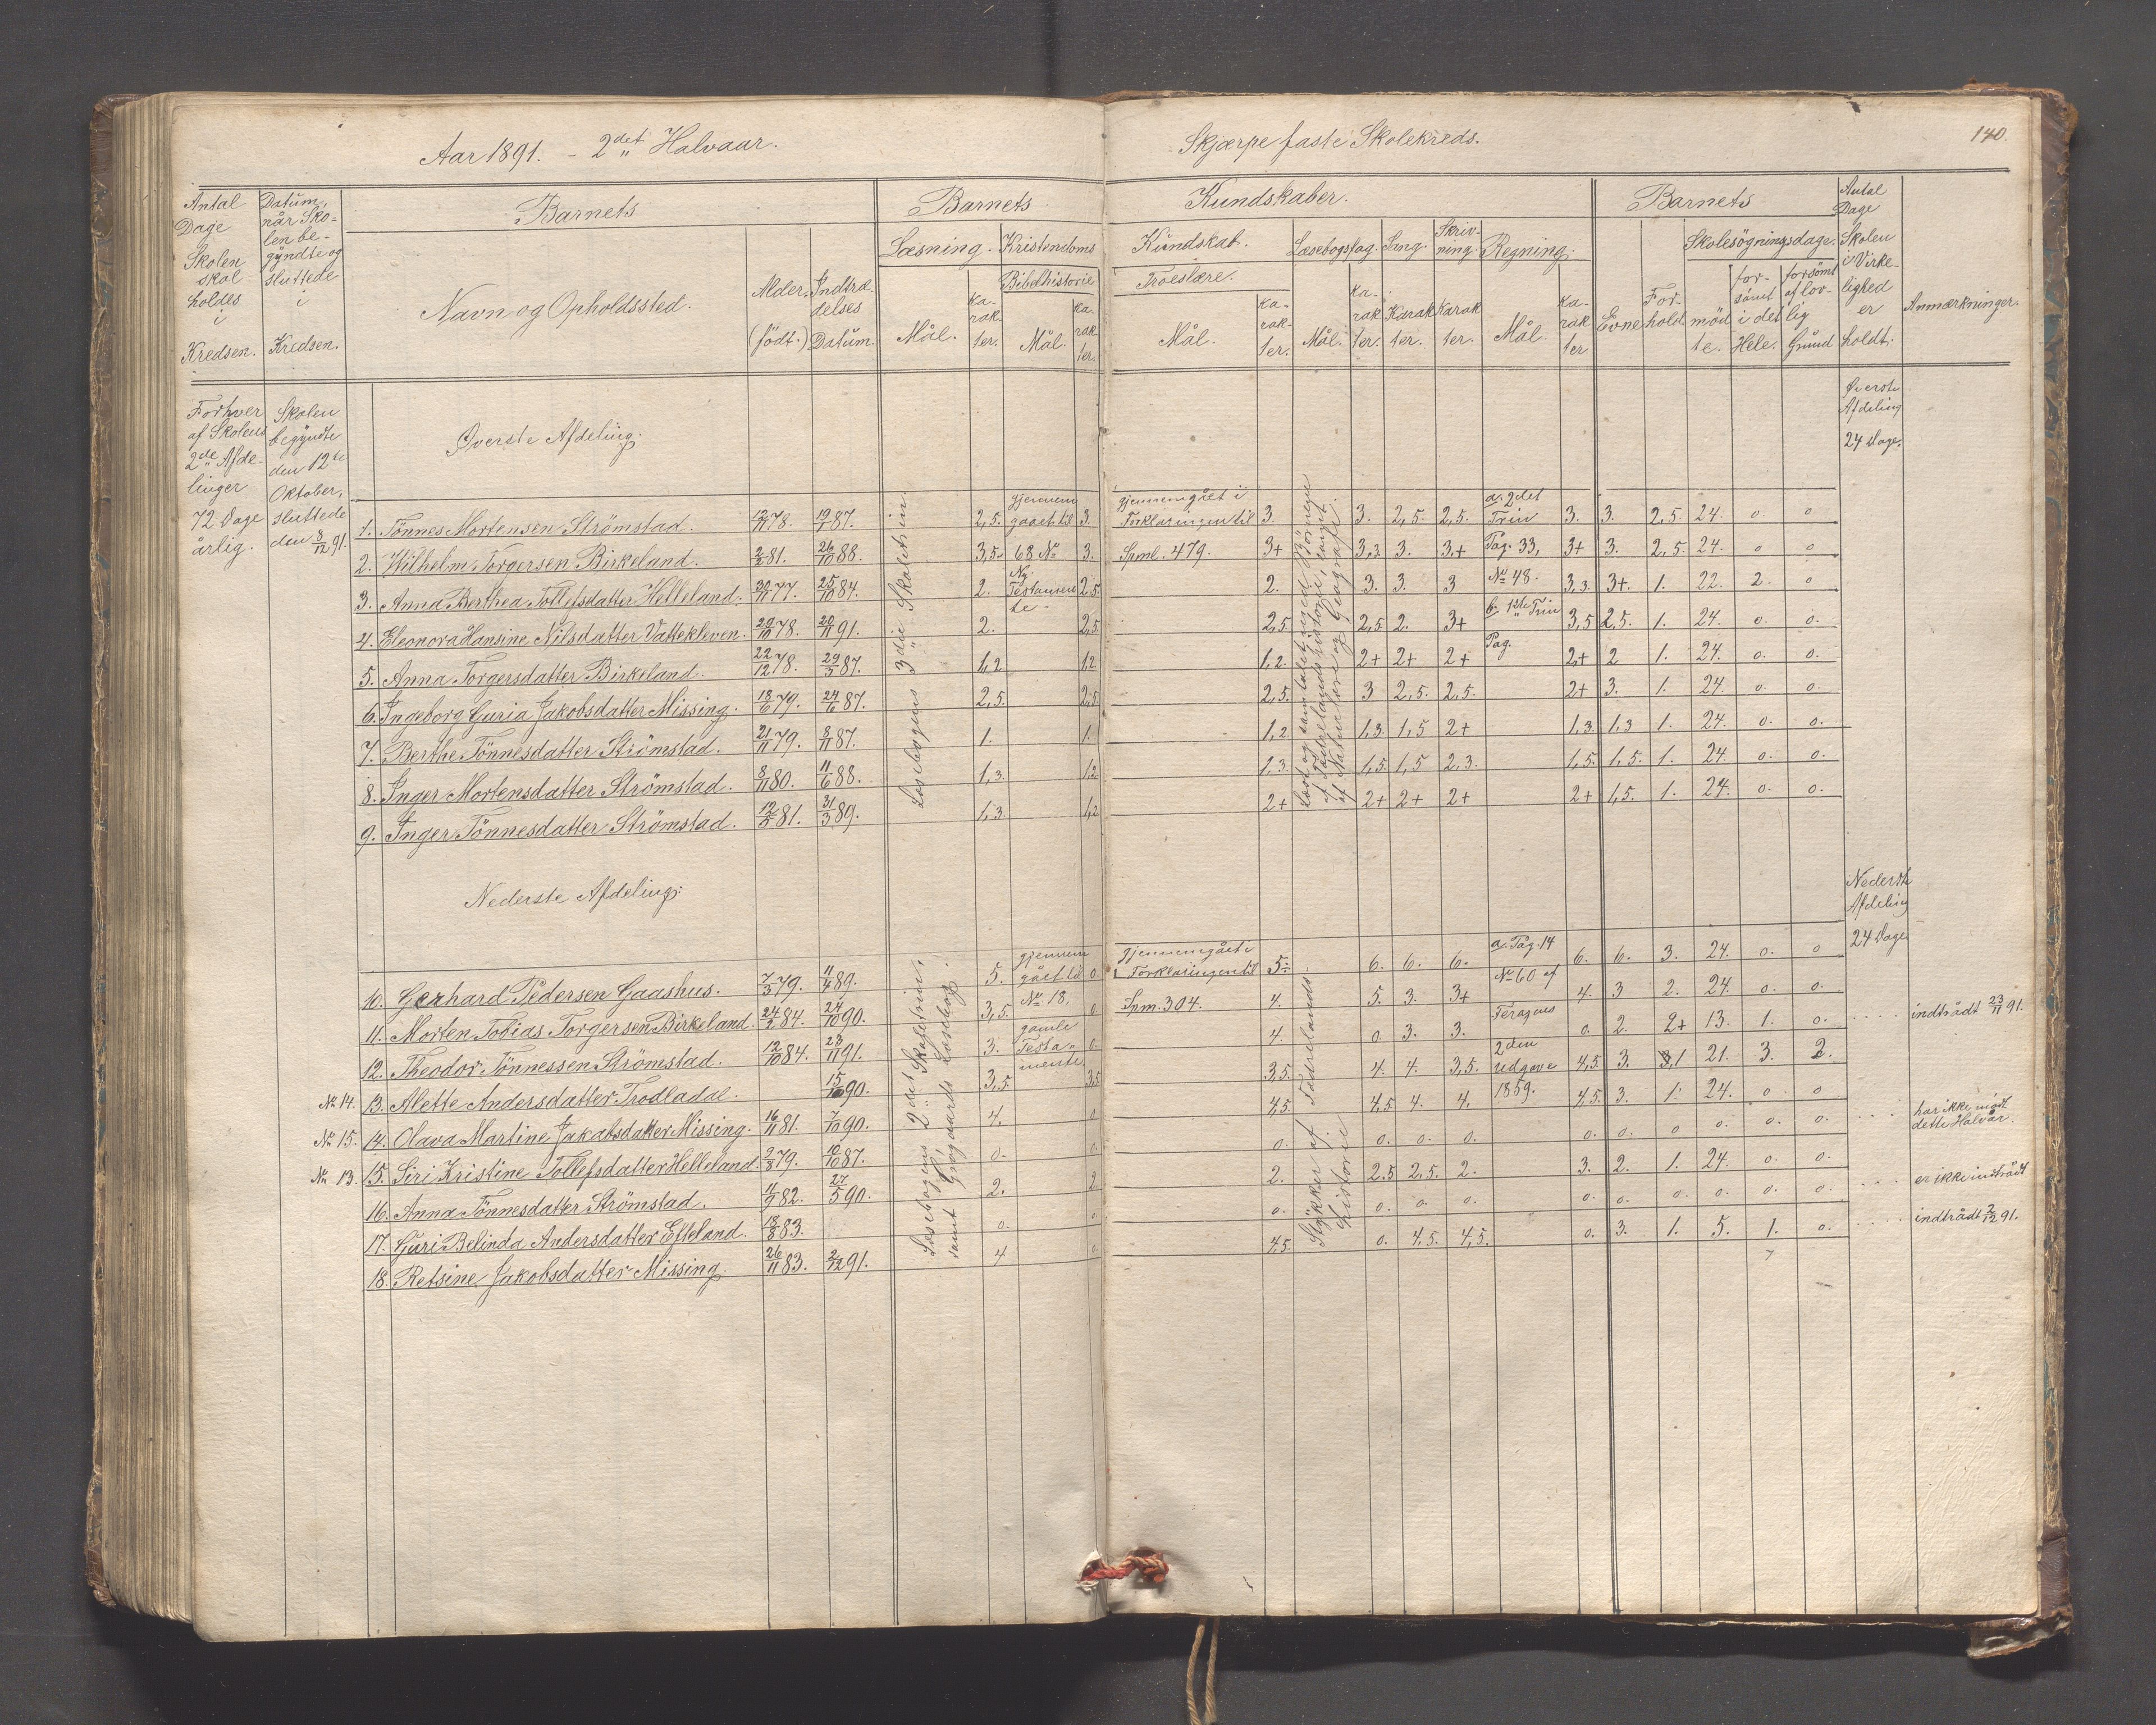 Aar 1891. - 2det Halvaar.
Skjærpe faste Skolekreds.
140.
Antal Dage Skolen skal holdes i Kredsen.
Datum, når Skolen begyndte og sluttede i Kredsen.
Barnets
Navn og Opholdssted.
Alder (født.)
Indtrædelses Datum.
Barnets
Kundskaber.
Læsning.
Mål.
Karakter.
Kristendoms
Kundskab.
Bibelhistorie
Mål.
Karakter.
Troeslære.
Mål.
Karakter.
Læsebogsfag.
Mål.
Karakter.
Sang.
Karakter.
Skrivning.
Karakter.
Regning.
Mål.
Karakter
Barnets
Evne
Forhold
Skolesøgningsdage.
mødte.
forsömt i det Hele.
forsömt af lovlig Grund
Antal Dage Skolen i Virkelighed er holdt.
Anmærkninger.
For hver af Skolens 2de Afdelinger 72 Dage årlig.
Skolen begyndte den 12te Oktober, sluttede den 8/12 91.
Øverste Afdeling.
Øverste Afdeling 24 Dage.
Læsebogens 3die Skoletrin
gjennemgaaet til 68 No Ny Testamente
gjennemgået i Forklaringen til Spml. 479.
a. 2det Trin Pag. 33, No 48.
b. 1ste Trin Pag.
1. Tönnes Mortensen Strömstad. 12/11 78. 19/1 87. 2,5. 3. 3. 3. 2,5. 2,5. 3. 3. 2,5. 24. 0 0
2. Wilhelm Torgersen Birkeland. 2/2 81. 26/10 88. 3,5. 3. 3+ 3,3 3. 3+ 3+ 3. 2,5. 24. 0 0
3. Anna Berthea Tollefsdatter Helleland. 30/11 77. 25/10 84. 2. 2,5 2. 3. 3. 3 3,3 3+. 1. 22. 2. 0
4. Eleonora Hansine Nilsdatter Vattekleven. 29/10 78. 20/11 91. 2. 2,5 2,5 2,5 2. 3+ 3,5 2,5. 1. 24. 0. 0.
5. Anna Torgersdatter Birkeland. 22/12 78. 29/3 87. 1,2 1,2. 1,2. 2+ 2+ 2+ 2+ 2 1. 24. 0. 0.
6. Ingeborg Guria Jakobsdatter Missing. 18/6 79. 24/6 87. 2,5. 2,5. 2,5. 3 2,5. 2,5. 2+ 3. 1. 24. 0. 0.
7. Berthe Tönnesdatter Strömstad. 21/11 79. 8/11 87. 1. 1 1,2 1,3. 1,5 2+ 1,3. 1,3 1. 24. 0. 0.
8. Inger Mortensdatter Strömstad. 8/11 80. 11/6 88. 1,3. 1,2. 1,3. 1,5. 1,5 2,3. 1,5. 1,5. 1. 24. 0. 0.
9. Inger Tönnesdatter Strömstad. 12/5 81. 31/3 89. 1,3. 1,2 2+ 2+ 2+ 2+ 2+ 1,5. 1. 24. 0. 0.
Nederste Afdeling.
Nederste Afdeling 24 Dage
Læsebogens 2det Skoletrin, samt Grøgaards Læsebog.
gjennemgået til No 18, gamle Testamente
gjennemgået i Forklaringen til Spm. 304.
Stykker af Fædrelands historie
a. Pag. 14 No 60 af Feragens 2den udgave 1859.
10. Gerhard Pedersen Gaashus. 7/3 79. 11/4 89. 5. 0. 5 6. 6. 6. 6. 6. 3. 24. 0. 0
11. Morten Tobias Torgersen Birkeland. 24/2 84. 24/10 90. 3,5. 0 4. 5. 3. 3+ 4. 3 2. 24. 0. 0.
12. Theodor Tönnessen Strömstad. 12/10 84. 23/11 91. 3. 0. 4. 0. 3. 3. 0. 2. 2+ 13. 1. 0. indtrådt 23/11 91.
No 14. 13. Alette Andersdatter Trodladal. 15/10 90. 3,5. 3,5 3,5. 4. 4. 3,5. 4,5. 3. 3,1 21. 3. 2.
No 15. 14. Olava Martine Jakobsdatter Missing. 16/11 81. 7/10 90. 4. 0 4,5. 4,5 4. 4. 4,5. 3. 1. 24. 0 0
No 13. 15. Siri Kristine Tollefsdatter Helleland. 2/3 79. 10/10 87. 0. 0. 0. 0. 0. 0. 0. 0. 0 0. 0. 0. har ikke mödt dette Halvår.
16. Anna Tönnesdatter Strömstad. 4/9 82. 27/5 90. 2. 2 2. 2,5 2,5. 2. 3. 2. 1. 24. 0. 0.
17. Guri Belinda Andersdatter Efteland. 18/8 83. 0. 0 0. 0. 0. 0. 0. 0. 0. 0. 0. 0. er ikke indtrådt
18. Retsine Jakobsdatter Missing. 26/11 83. 2/12 91. 4 0. 4,5. 0. 4,5. 4,5. 0. 3. 1. 5. 1. 0. indtrådt 2/12 91.
7